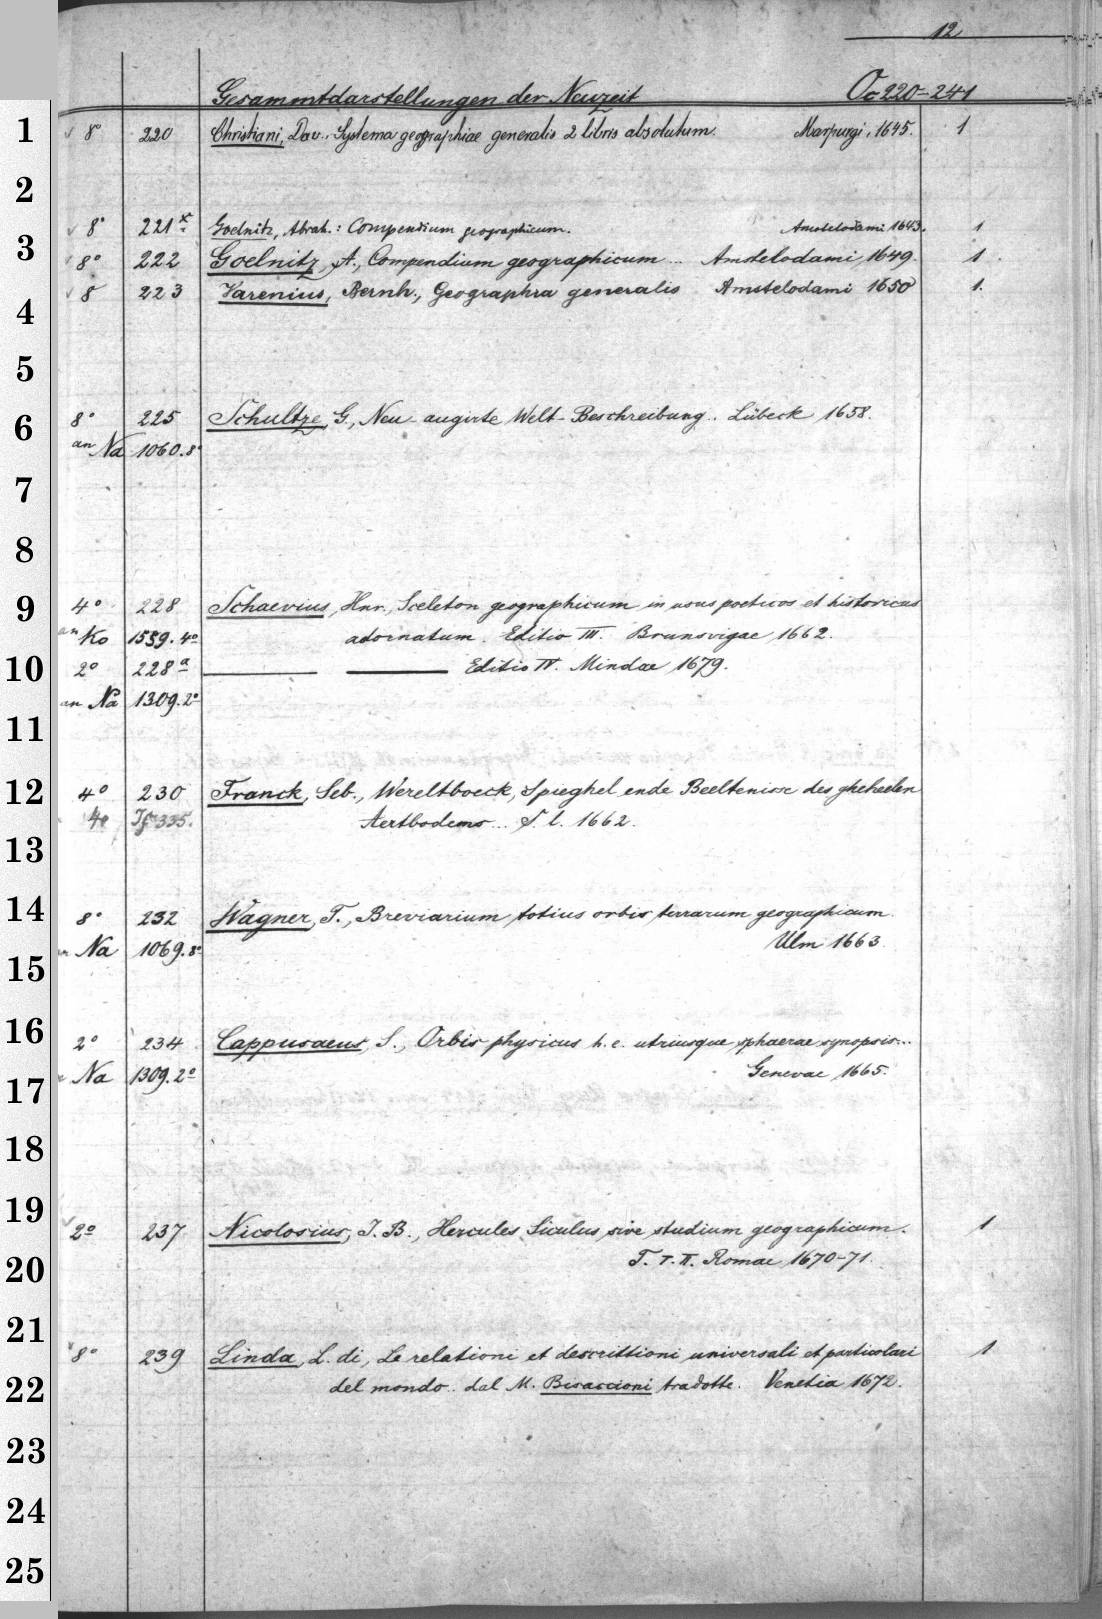 12
Gesammtdarstellungen der Neuzeit Oc 220-241
1 v 8° 220 Christiani, Dav.. Systema geographiae generalis 2 libris absolutum. Marpurgi, 1645. 1
2
v 8° 221x Goelnitz, Abrah.: Compendium geographicum. Amstelodami 1643. 1
3 v 8° 222 Goelnitz, A., Compendium geographicum... Amstelodami 1649. 1.
4 v 8 223 Varenius, Bernh., Geographia generalis Amstelodami 1650 1.
5
6 8° 225 Schultze, G., Neu augirte Welt-Beschreibung. Lübeck 1658.
an Na 1060.8°
7
8
9 4° 228 Schaevius, Hnr., Sceleton geographicum in usus poeticos et historicos
an Ko 1559.4° adornatum. Editio III. Brunsvigae, 1662.
10 2° 228a ——— ——— Editio IV. Mindae 1679.
an Na 1309.2°
11
12 4° 230 Franck, Seb., Wereltboeck, Spieghel ende Beeltenisse des gheheelen
4° 335. Aertbodems... S. l. 1662.
13
14 8° 232 Wagner, T., Breviarium totius orbis terrarum geographicum.
Na 1069.8° Ulm 1663
15
16 2° 234 Cappusaeus, S., Orbis physicus h. e. utriusque sphaerae synopsis...
17 Na 1309.2° Genevae 1665.
18
19 v 2° 237 Nicolosius, J. B., Hercules Siculus sive studium geographicum. 1
20 T. I. II. Romae 1670-71.
21
v 8° 239 Linda, L. di, Le relationi et descrittioni universali et particolari 1
22 del mondo. dal M. Bisaccioni tradotte. Venetia 1672.
23
24
25